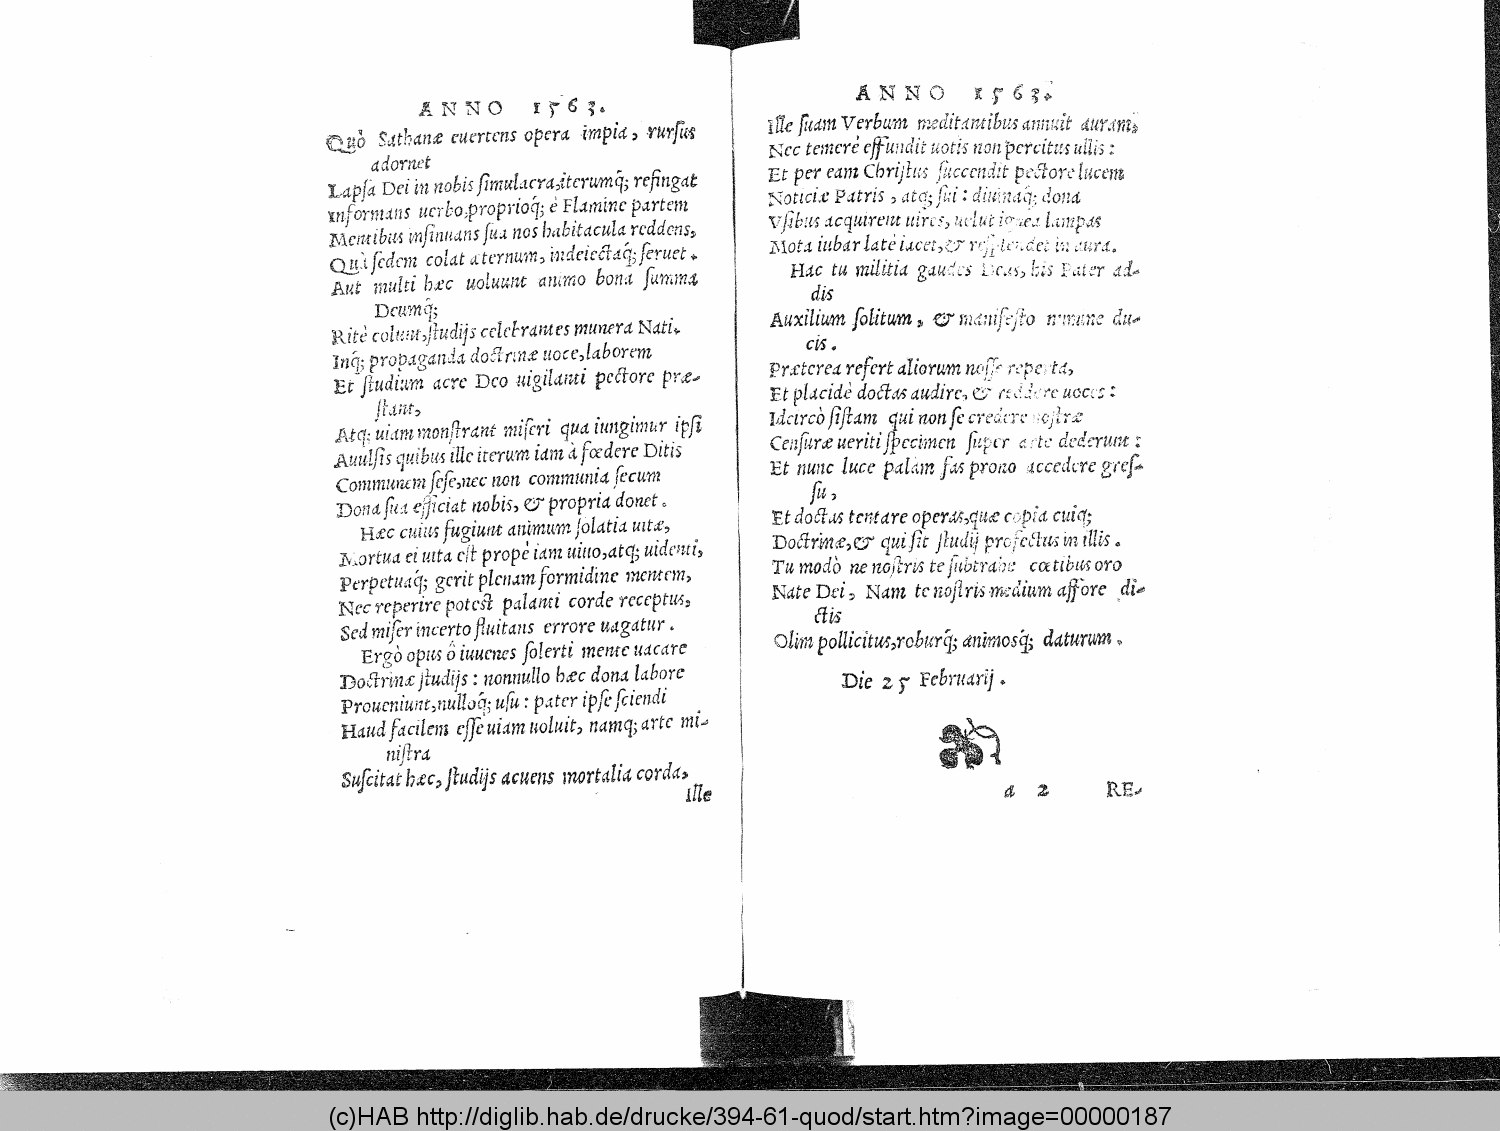 ANNO 1563.
Quò Sathanæ euertens opera impia, rursus
adornet
Lapsa Dei in nobis simulacra, iterumq́; refingat
Informans uerbo, proprioq́; è Flamine partem
Mentibus insinuans sua nos habitacula reddens,
Quà sedem colat æternum, indeiectaq́; seruet.
Aut multi hæc uoluunt animo bona summa
Deumq́;
Ritè colunt, studijs celebrantes munera Nati.
Inq́; propaganda doctrinæ uoce, laborem
Et studium acre Deo uigilanti pectore præ-
stant,
Atq; uiam monstrant miseri qua iungimur ipsi
Auulsis quibus ille iterum iam à fœdere Ditis
Communem sese, nec non communia secum
Dona sua efficiat nobis, & propria donet.
Hæc cuius fugiunt animum solatia uitæ,
Mortua ei uita est propè iam uiuo, atq; uidenti,
Perpetuaq́; gerit plenam formidine mentem,
Nec reperire potest palanti corde receptus,
Sed miser incerto fluitans errore uagatur.
Ergò opus ô iuuenes solerti mente uacare
Doctrinæ studijs: nonnullo hæc dona labore
Proueniunt, nulloq́; usu: pater ipse sciendi
Haud facilem esse uiam uoluit, namq; arte mi-
nistra
Suscitat hæc, studijs acuens mortalia corda,
ille
ANNO 1563.
Ille suam Verbum meditantibus annuit auram,
Nec temerè effundit uotis non percitus ullis:
Et per eam Christus succendit pectore lucem
Noticiæ Patris, atq; sui: diuinaq́; dona
Vsibus acquirent uires, uelut ignea lampas
Mota iubar latè iacet, & resplendet in aura.
Hac tu militia gaudes Deus, his Pater ad-
dis
Auxilium solitum, & manifesto munane du-
cis.
Præterea refert aliorum nosse reperta,
Et placidè doctas audire, & reddere uoces:
Idcircò sistam qui non se credere nostræ
Censuræ ueriti specimen super arte dederunt:
Et nunc luce palàm fas prono accedere gres-
su,
Et doctas tentare operas, quæ copia cuiq;
Doctrinæ, & qui sit studij profectus in illis.
Tu modò ne nostris te subtrahe cœtibus oro
Nate Dei, Nam te nostris medium affore di-
ctis
Olim pollicitus, roburq́; animosq́; daturum.
Die 25 Februarij.
a 2 RE-
(c)HAB http://diglib.hab.de/drucke/394-61-quod/start.htm?image=00000187